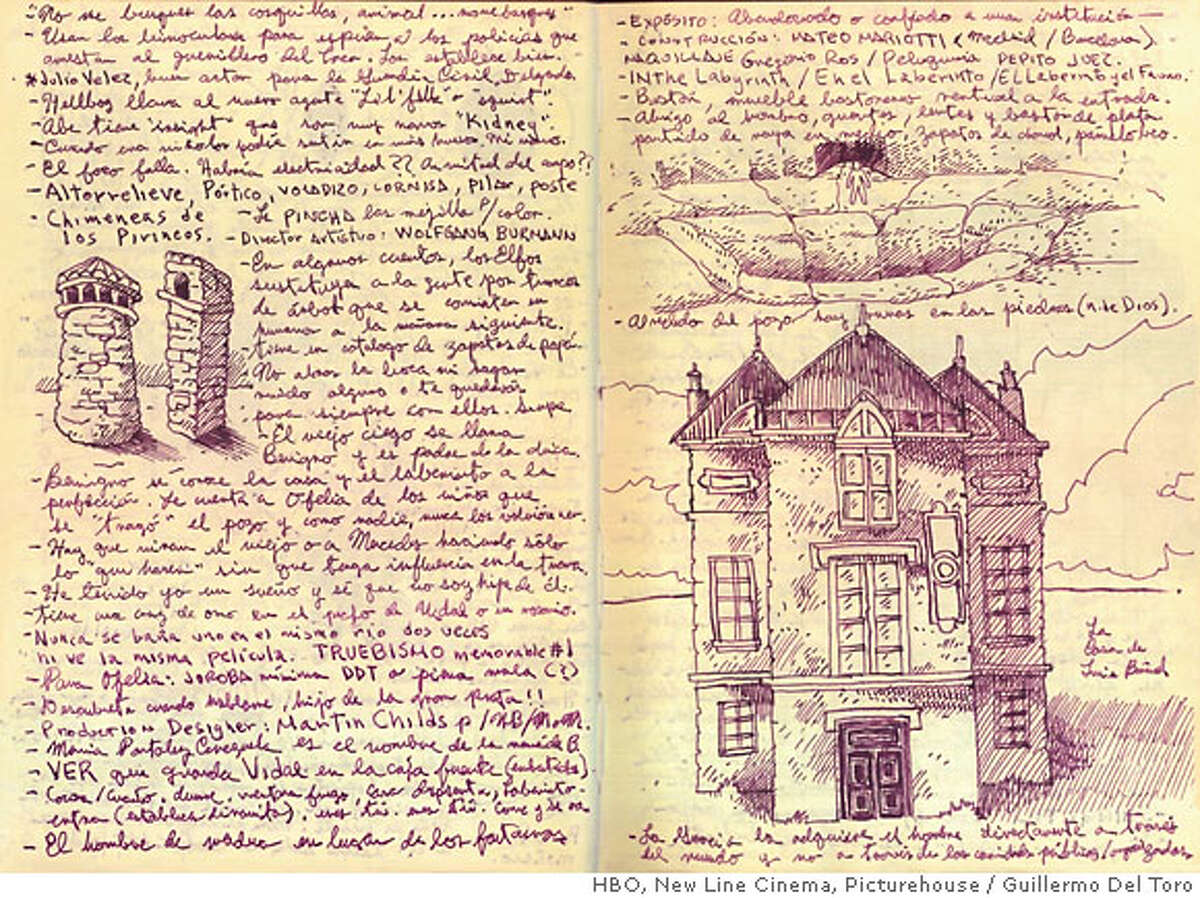 "No se busques las cosquillas, animal... no me busques"
- Usan los binoculares para espiar a los policías que
arrestan al guerrillero del Taca. Lo establece bien.
* Julio Velez, buen actor para la Guardia Civil, Delgado.
- Hellboy llama al nuevo agente "Lil' fella" o "squirt".
- Abe tiene "insight" que son muy "Kidney".
- Cuando era
- El foco falla. Habría electricidad?? A mitad del campo??
- Altorrelieve, Pórtico, VOLADIZO, CORNISA, PILAR, POSTE
- Chimeneas de los Pirineos.
- Se PINCHA las mejillas p/color.
- Director artístico: WOLFGANG BURMANN
- En algunos cuentos, los Elfos
sustituyen a la gente por troncos
de árbol que se convierten en
humano a la mañana siguiente.
- Tiene un catalogo de zapatos de papá.
- No abras la boca ni hagas
ruido alguno o te quedarás
para siempre con ellos. Siempre
- El viejo ciego se llama
Benigno y es padre de la chica.
Benigno se conoce la casa y el laberinto a la
perfección. Le cuenta a Ofelia de los niños que
se "tragó" el pozo y como nadie, nunca los volvió a ver.
- Hay que mirar el viejo o a Mercedes haciendo sólo
lo "que hacen" sin que tenga influencia en la trama.
- He tenido yo un sueño y sé que no soy hija de él.
- Tiene una cruz de oro en el puño de Vidal o un rosario.
- Nunca se baña uno en el mismo río dos veces
ni ve la misma película. TRUEBISMO memorable #1
- Para Ofelia: JOROBA mínima DDT o pierna mala (?)
- Descubierta cuando hablame / hijo de la gran puta!!
- Production Designer: Martin Childs p/HB/MoM.
- Maria es el nombre de la B.
- VER que guarda Vidal en la caja fuerte (embutida).
- duerme, fuego, despierta, laberinto-
entran (establece). come y se va
- El hombre de madera en lugar de los fantasmas
- EXPÓSITO: Abandonado o confiado a una institución
- CONSTRUCCIÓN: MATEO MARIOTTI (Madrid / Barcelona).
MAQUILLAJE Gregorio Ros / Peluquería PEPITO JUEZ.
- IN the Labyrinth / En el Laberinto / El Laberinto y el Fauno.
- Bastón, mueble bastonero vertical a la entrada.
- Abrigo al hombro, guantes, lentes y bastón de plata
partido de raya en medio, zapatos de charol, pañuelo
- Alrededor del pozo hay runas en las piedras (n. de Dios).
La
Casa de
Luis Buñuel
- La Gracia la adquiere el hombre directamente a través
del mundo y no a través de los canales públicos/organizados
HBO, New Line Cinema, Picturehouse / Guillermo Del Toro